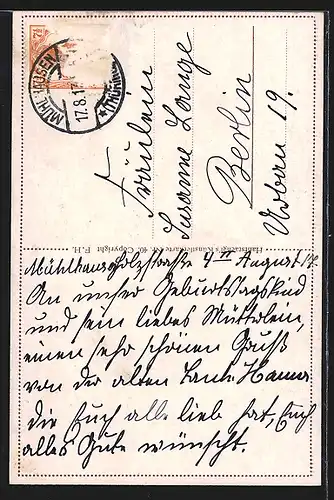 7½
MÜHLHAUSEN
17.8.17
* (THÜRING
Fräulein
Susanne Lange
Berlin
Urban 19.
Künstlerkarte Nr. 40. Copyright F. H.
Mühlhausen August 17.
An unser Geburtstagskind
und sein liebes Mütterlein,
einen sehr schönen Gruß
von der alten Tante Hanna
die Euch alle lieb hat, Euch
alles Gute wünscht.